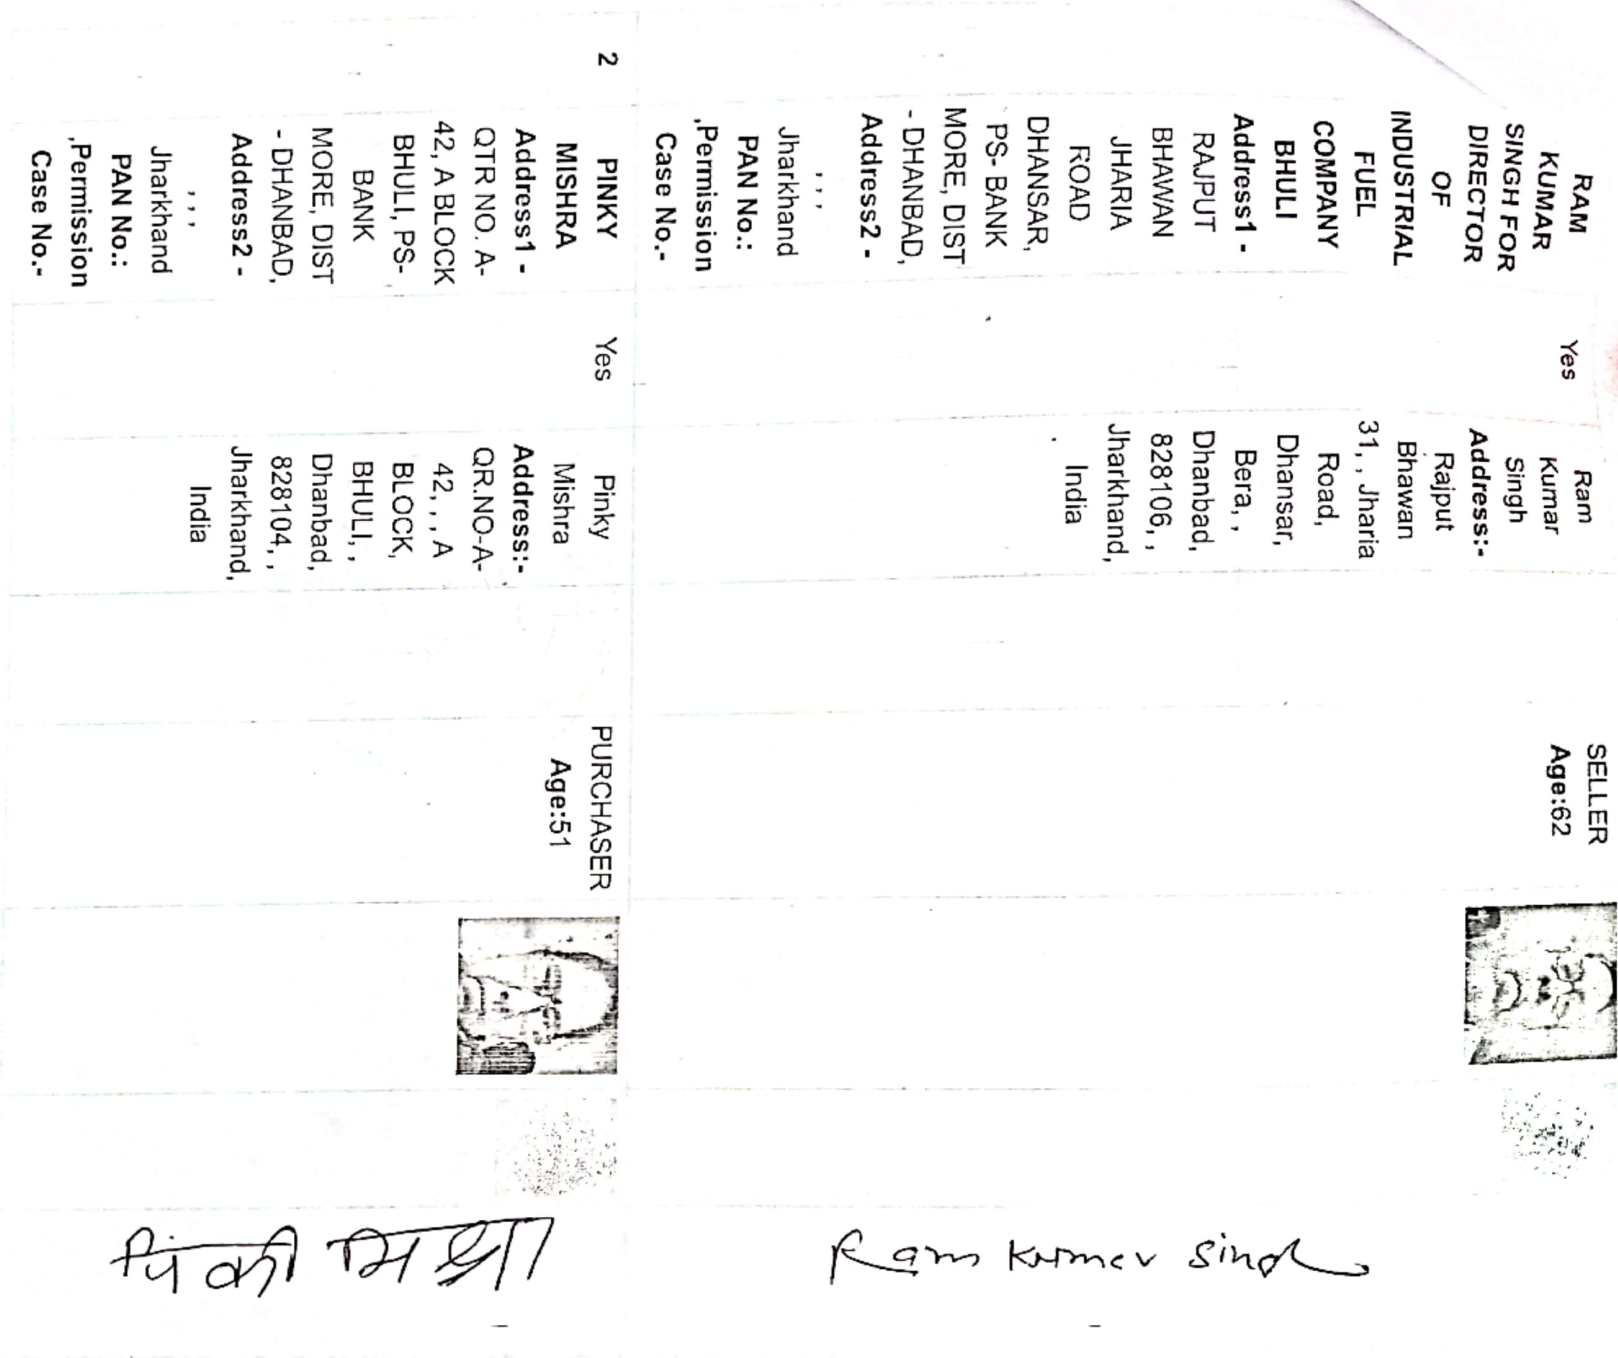 RAM
KUMAR
SINGH FOR
DIRECTOR
OF
INDUSTRIAL
FUEL
COMPANY
BHULI
Address1 -
RAJPUT
BHAWAN
JHARIA
ROAD
DHANSAR,
PS- BANK
MORE, DIST
- DHANBAD,
Address2 -
, , ,
Jharkhand
PAN No.:
,Permission
Case No.-
Yes
Ram
Kumar
Singh
Address:-
Rajput
Bhawan
31, , Jharia
Road,
Dhansar,
Bera, ,
Dhanbad,
828106, ,
Jharkhand,
India
SELLER
Age:62
Ram Kumar Singh
2
PINKY
MISHRA
Address1 -
QTR NO. A-
42, A BLOCK
BHULI, PS-
BANK
MORE, DIST
- DHANBAD,
Address2 -
, , ,
Jharkhand
PAN No.:
,Permission
Case No.-
Yes
Pinky
Mishra
Address:-
QR.NO-A-
42, , , A
BLOCK,
BHULI, ,
Dhanbad,
828104, ,
Jharkhand,
India
PURCHASER
Age:51
पिंकी मिश्रा